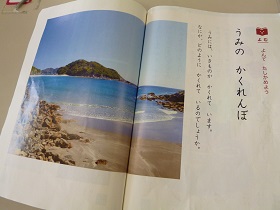 よむ
よんで たしかめよう
うみの かくれんぼ
うみには、いきものが かくれて います。
なにが、どのように かくれて いるのでしょうか。